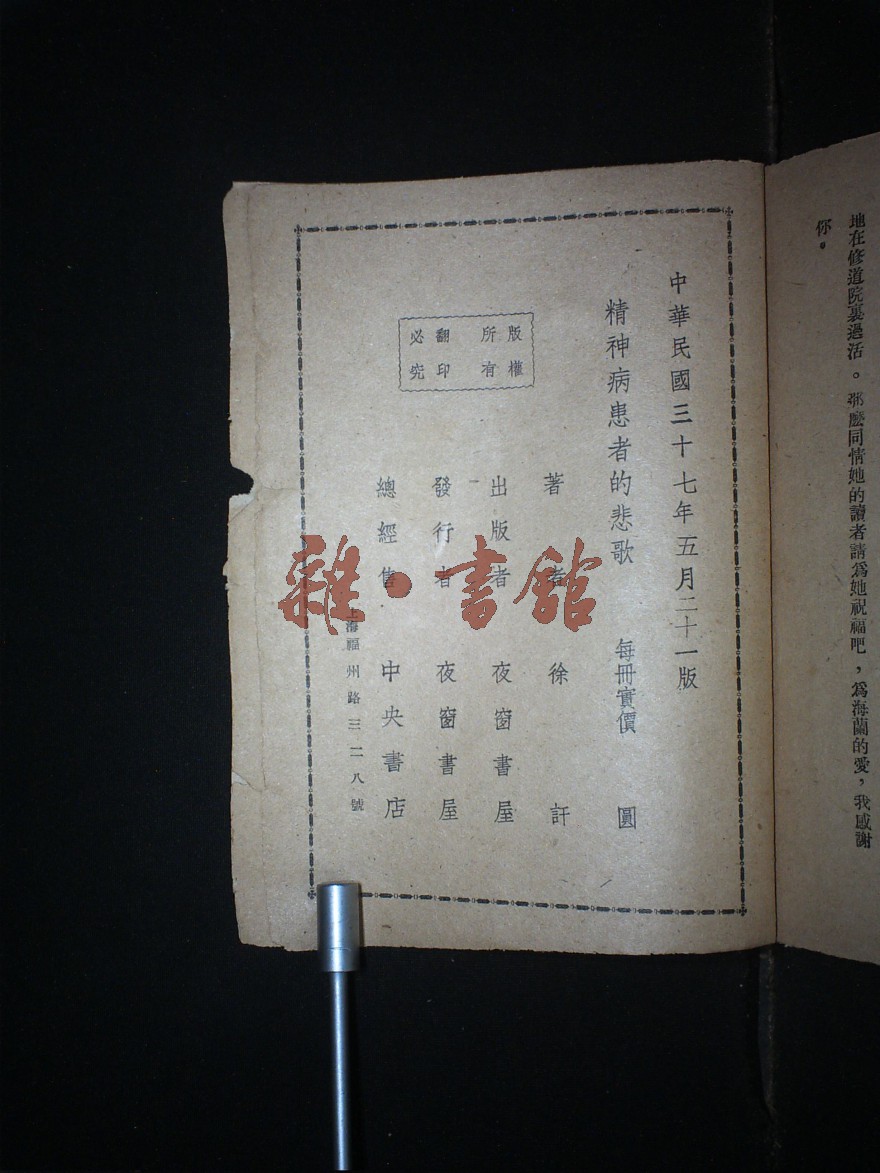 地在修道院裏過活。那麼同情她的讀者請為她祝福吧，為海蘭的愛，我感謝
你。
中華民國三十七年五月二十一版
精神病患者的悲歌 每冊實價 圓
著者 徐訏
出版者 夜窗書屋
發行者 夜窗書屋
總經售 中央書店
上海福州路三二八號
版權
所有
翻印
必究
雜·書館